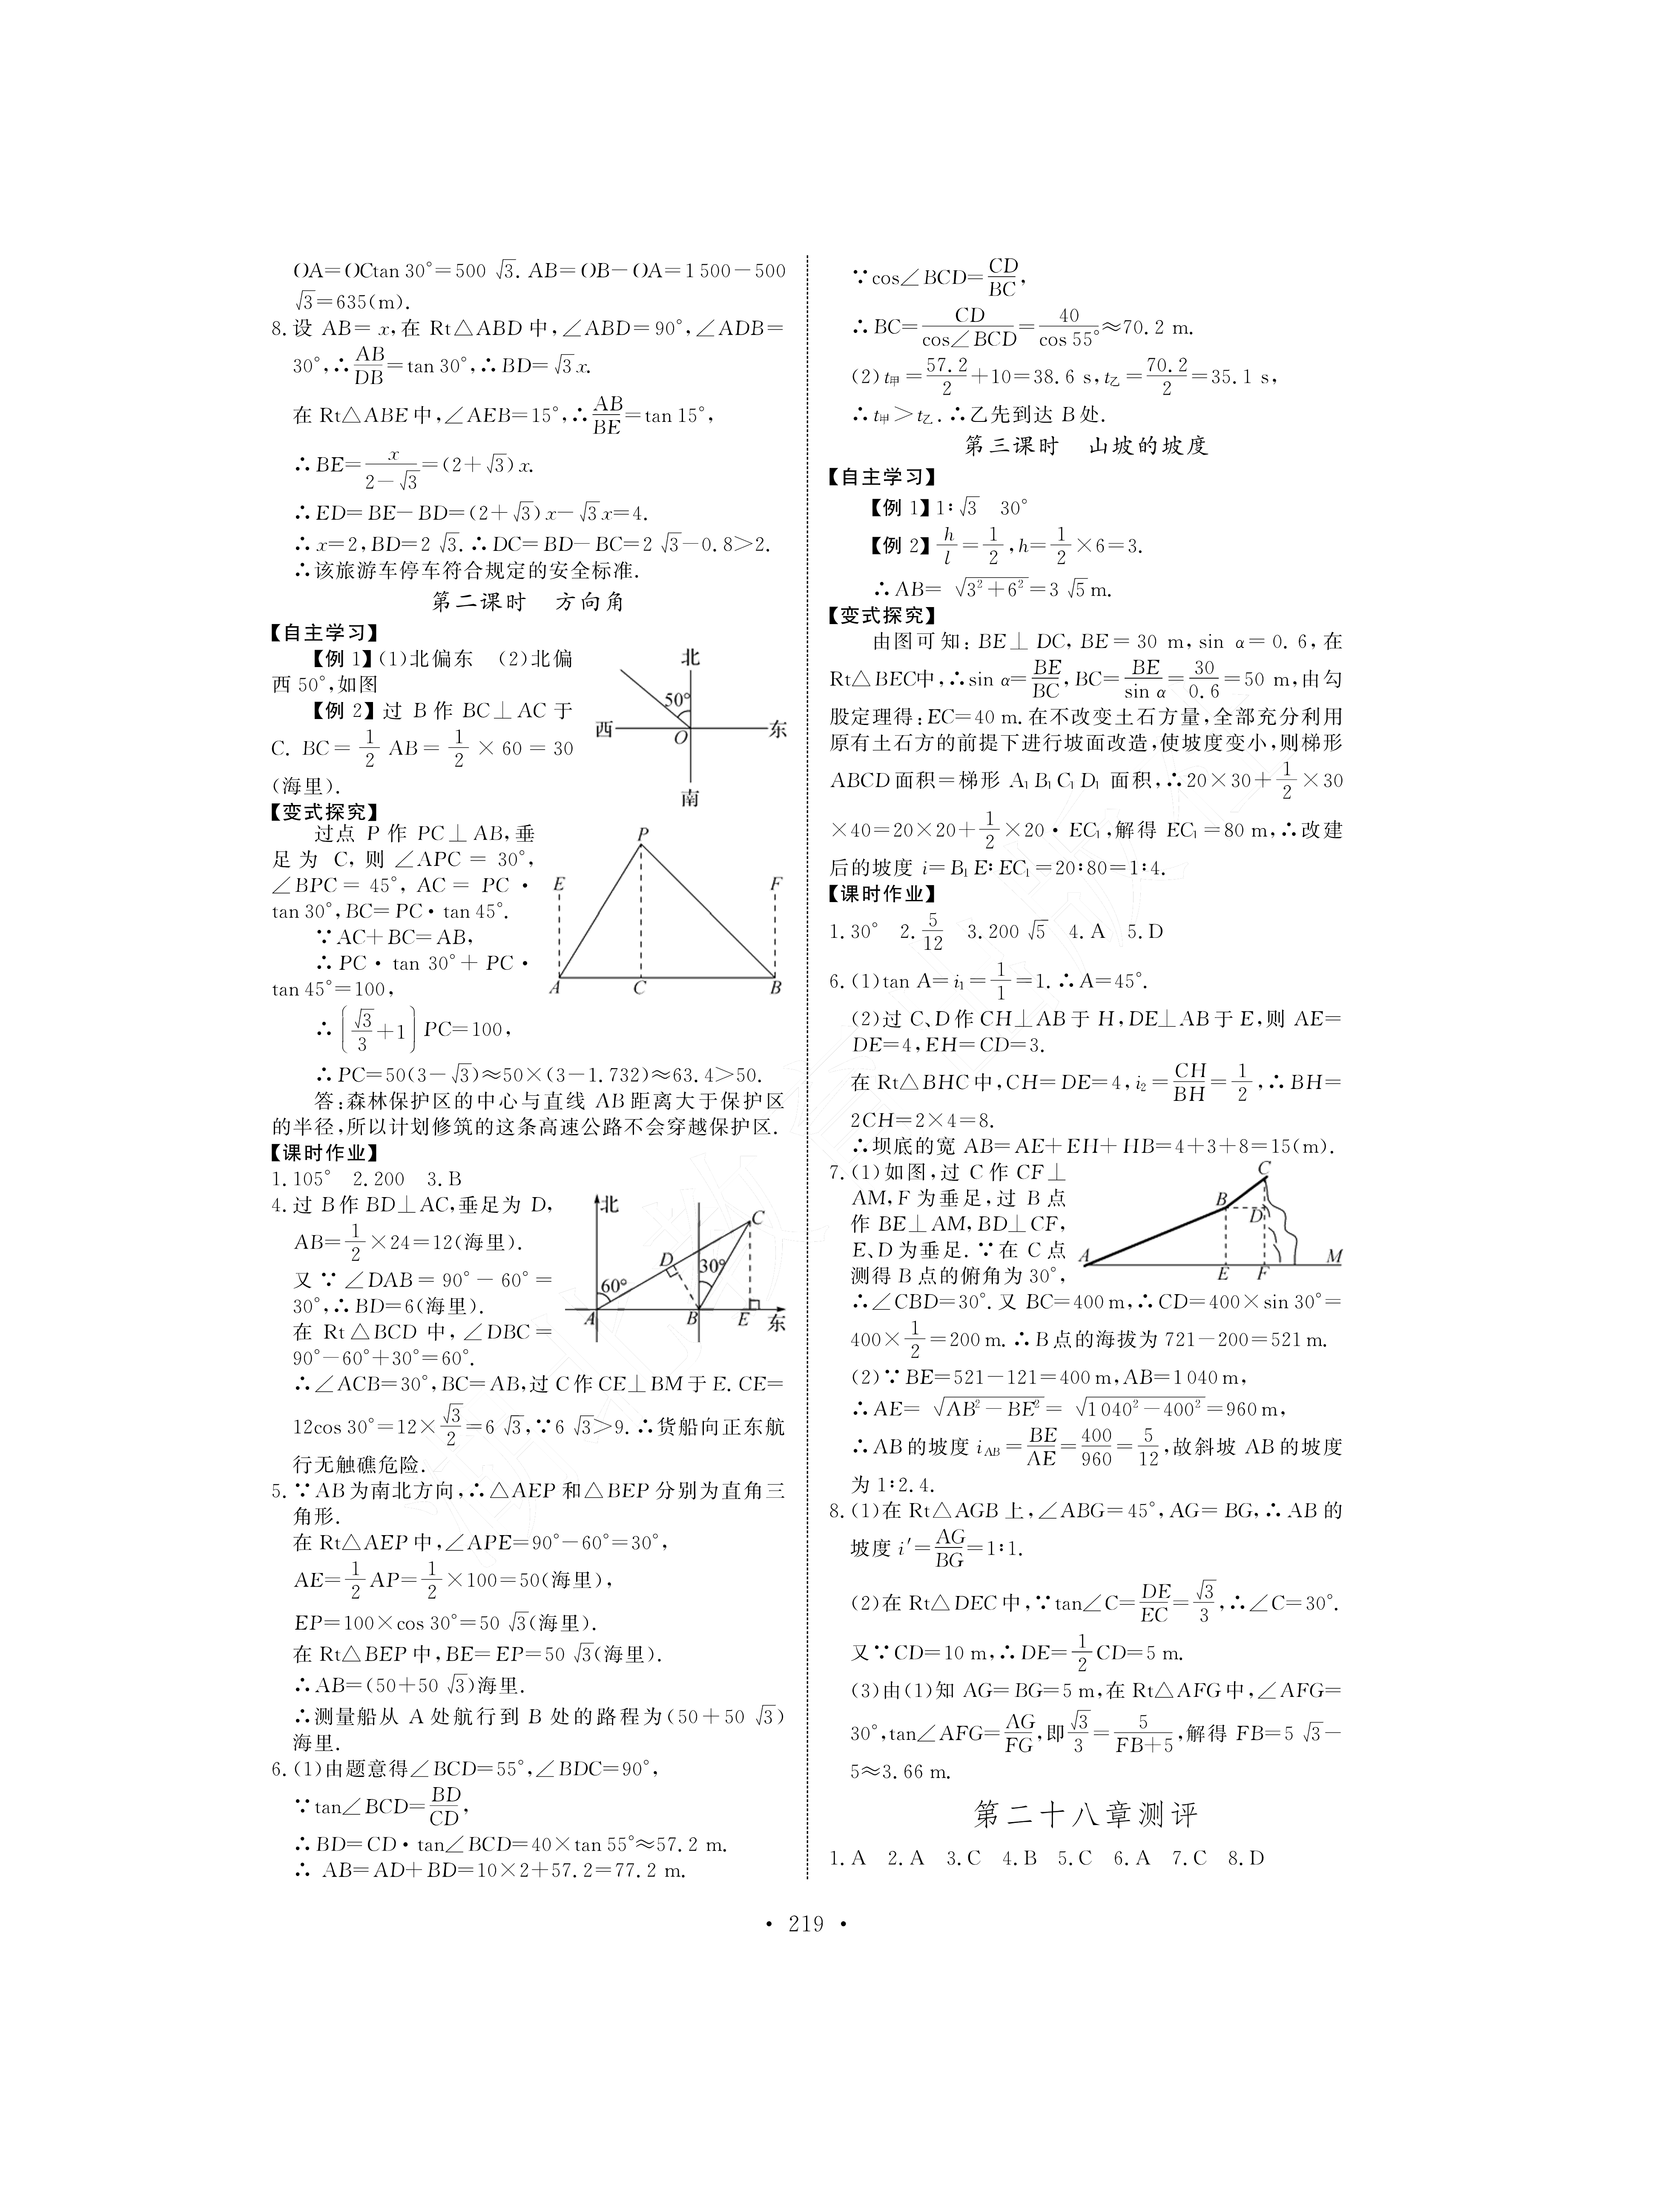 OA=OCtan 30°=500 √3. AB=OB−OA=1 500−500
√3=635(m).
8. 设 AB= x,在 Rt△ABD 中,∠ABD=90°,∠ADB=
30°,∴AB/DB=tan 30°,∴BD=√3x.
在 Rt△ABE 中,∠AEB=15°,∴AB/BE=tan 15°,
∴BE=x/(2−√3)=(2+√3)x.
∴ED=BE−BD=(2+√3)x−√3x=4.
∴x=2,BD=2 √3.∴DC=BD−BC=2 √3−0.8>2.
∴该旅游车停车符合规定的安全标准.
第二课时 方向角
【自主学习】
【例 1】(1)北偏东 (2)北偏
西 50°,如图
【例 2】过 B 作 BC⊥AC 于
C. BC=1/2 AB=1/2×60=30
(海里).
北
50°
西
O
东
南
【变式探究】
过点 P 作 PC⊥AB,垂
足为 C,则∠APC=30°,
∠BPC=45°, AC=PC·
tan 30°,BC=PC·tan 45°.
∵AC+BC=AB,
∴PC·tan 30°+PC·
tan 45°=100,
P
E
F
A
C
B
∴(√3/3+1)PC=100,
∴PC=50(3−√3)≈50×(3−1.732)≈63.4>50.
答:森林保护区的中心与直线 AB 距离大于保护区
的半径,所以计划修筑的这条高速公路不会穿越保护区.
【课时作业】
1. 105° 2. 200 3. B
4. 过 B 作 BD⊥AC,垂足为 D,
AB=1/2×24=12(海里).
又∵∠DAB=90°−60°=
30°,∴BD=6(海里).
在 Rt△BCD 中,∠DBC=
90°−60°+30°=60°.
北
C
D
60°
30°
A
B
E
东
∴∠ACB=30°,BC=AB,过 C 作 CE⊥BM 于 E. CE=
12cos 30°=12×√3/2=6 √3,∵6 √3>9.∴货船向正东航
行无触礁危险.
5. ∵AB 为南北方向,∴△AEP 和△BEP 分别为直角三
角形.
在 Rt△AEP 中,∠APE=90°−60°=30°,
AE=1/2 AP=1/2×100=50(海里),
EP=100×cos 30°=50 √3(海里).
在 Rt△BEP 中,BE=EP=50 √3(海里).
∴AB=(50+50 √3)海里.
∴测量船从 A 处航行到 B 处的路程为(50+50 √3)
海里.
6. (1)由题意得∠BCD=55°,∠BDC=90°,
∵tan∠BCD=BD/CD,
∴BD=CD·tan∠BCD=40×tan 55°≈57.2 m.
∴ AB=AD+BD=10×2+57.2=77.2 m.
∵cos∠BCD=CD/BC,
∴BC=CD/cos∠BCD=40/cos 55°≈70.2 m.
(2)t甲=57.2/2+10=38.6 s,t乙=70.2/2=35.1 s,
∴t甲>t乙.∴乙先到达 B 处.
第三课时 山坡的坡度
【自主学习】
【例 1】1∶√3 30°
【例 2】h/l=1/2,h=1/2×6=3.
∴AB= √(3²+6²)=3 √5 m.
【变式探究】
由图可知: BE⊥DC, BE=30 m, sin α=0.6,在
Rt△BEC中,∴sin α=BE/BC,BC=BE/sin α=30/0.6=50 m,由勾
股定理得:EC=40 m.在不改变土石方量,全部充分利用
原有土石方的前提下进行坡面改造,使坡度变小,则梯形
ABCD 面积=梯形 A₁B₁C₁D₁ 面积,∴20×30+1/2×30
×40=20×20+1/2×20·EC₁,解得 EC₁=80 m,∴改建
后的坡度 i=B₁E∶EC₁=20∶80=1∶4.
【课时作业】
1. 30° 2. 5/12 3. 200 √5 4. A 5. D
6. (1)tan A=i₁=1/1=1.∴A=45°.
(2)过 C、D 作 CH⊥AB 于 H,DE⊥AB 于 E,则 AE=
DE=4,EH=CD=3.
在 Rt△BHC 中,CH=DE=4,i₂=CH/BH=1/2,∴BH=
2CH=2×4=8.
∴坝底的宽 AB=AE+EH+HB=4+3+8=15(m).
7. (1)如图,过 C 作 CF⊥
AM,F 为垂足,过 B 点
作 BE⊥AM,BD⊥CF,
E、D 为垂足.∵在 C 点
测得 B 点的俯角为 30°,
C
B
D
A
E
F
M
∴∠CBD=30°.又 BC=400 m,∴CD=400×sin 30°=
400×1/2=200 m.∴B 点的海拔为 721−200=521 m.
(2)∵BE=521−121=400 m,AB=1 040 m,
∴AE= √(AB²−BE²)= √(1 040²−400²)=960 m,
∴AB 的坡度 iAB=BE/AE=400/960=5/12,故斜坡 AB 的坡度
为 1∶2.4.
8. (1)在 Rt△AGB 上,∠ABG=45°,AG=BG,∴AB 的
坡度 i′=AG/BG=1∶1.
(2)在 Rt△DEC 中,∵tan∠C=DE/EC=√3/3,∴∠C=30°.
又∵CD=10 m,∴DE=1/2 CD=5 m.
(3)由(1)知 AG=BG=5 m,在 Rt△AFG 中,∠AFG=
30°,tan∠AFG=AG/FG,即√3/3=5/(FB+5),解得 FB=5 √3−
5≈3.66 m.
第二十八章测评
1. A 2. A 3. C 4. B 5. C 6. A 7. C 8. D
• 219 •